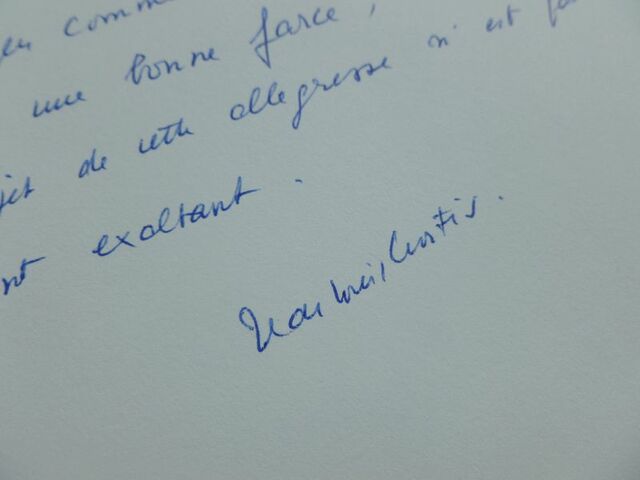 comm
une bonne farce,
jet de cette allégresse n'est pa
nt exaltant.
Jean Louis Curtis.